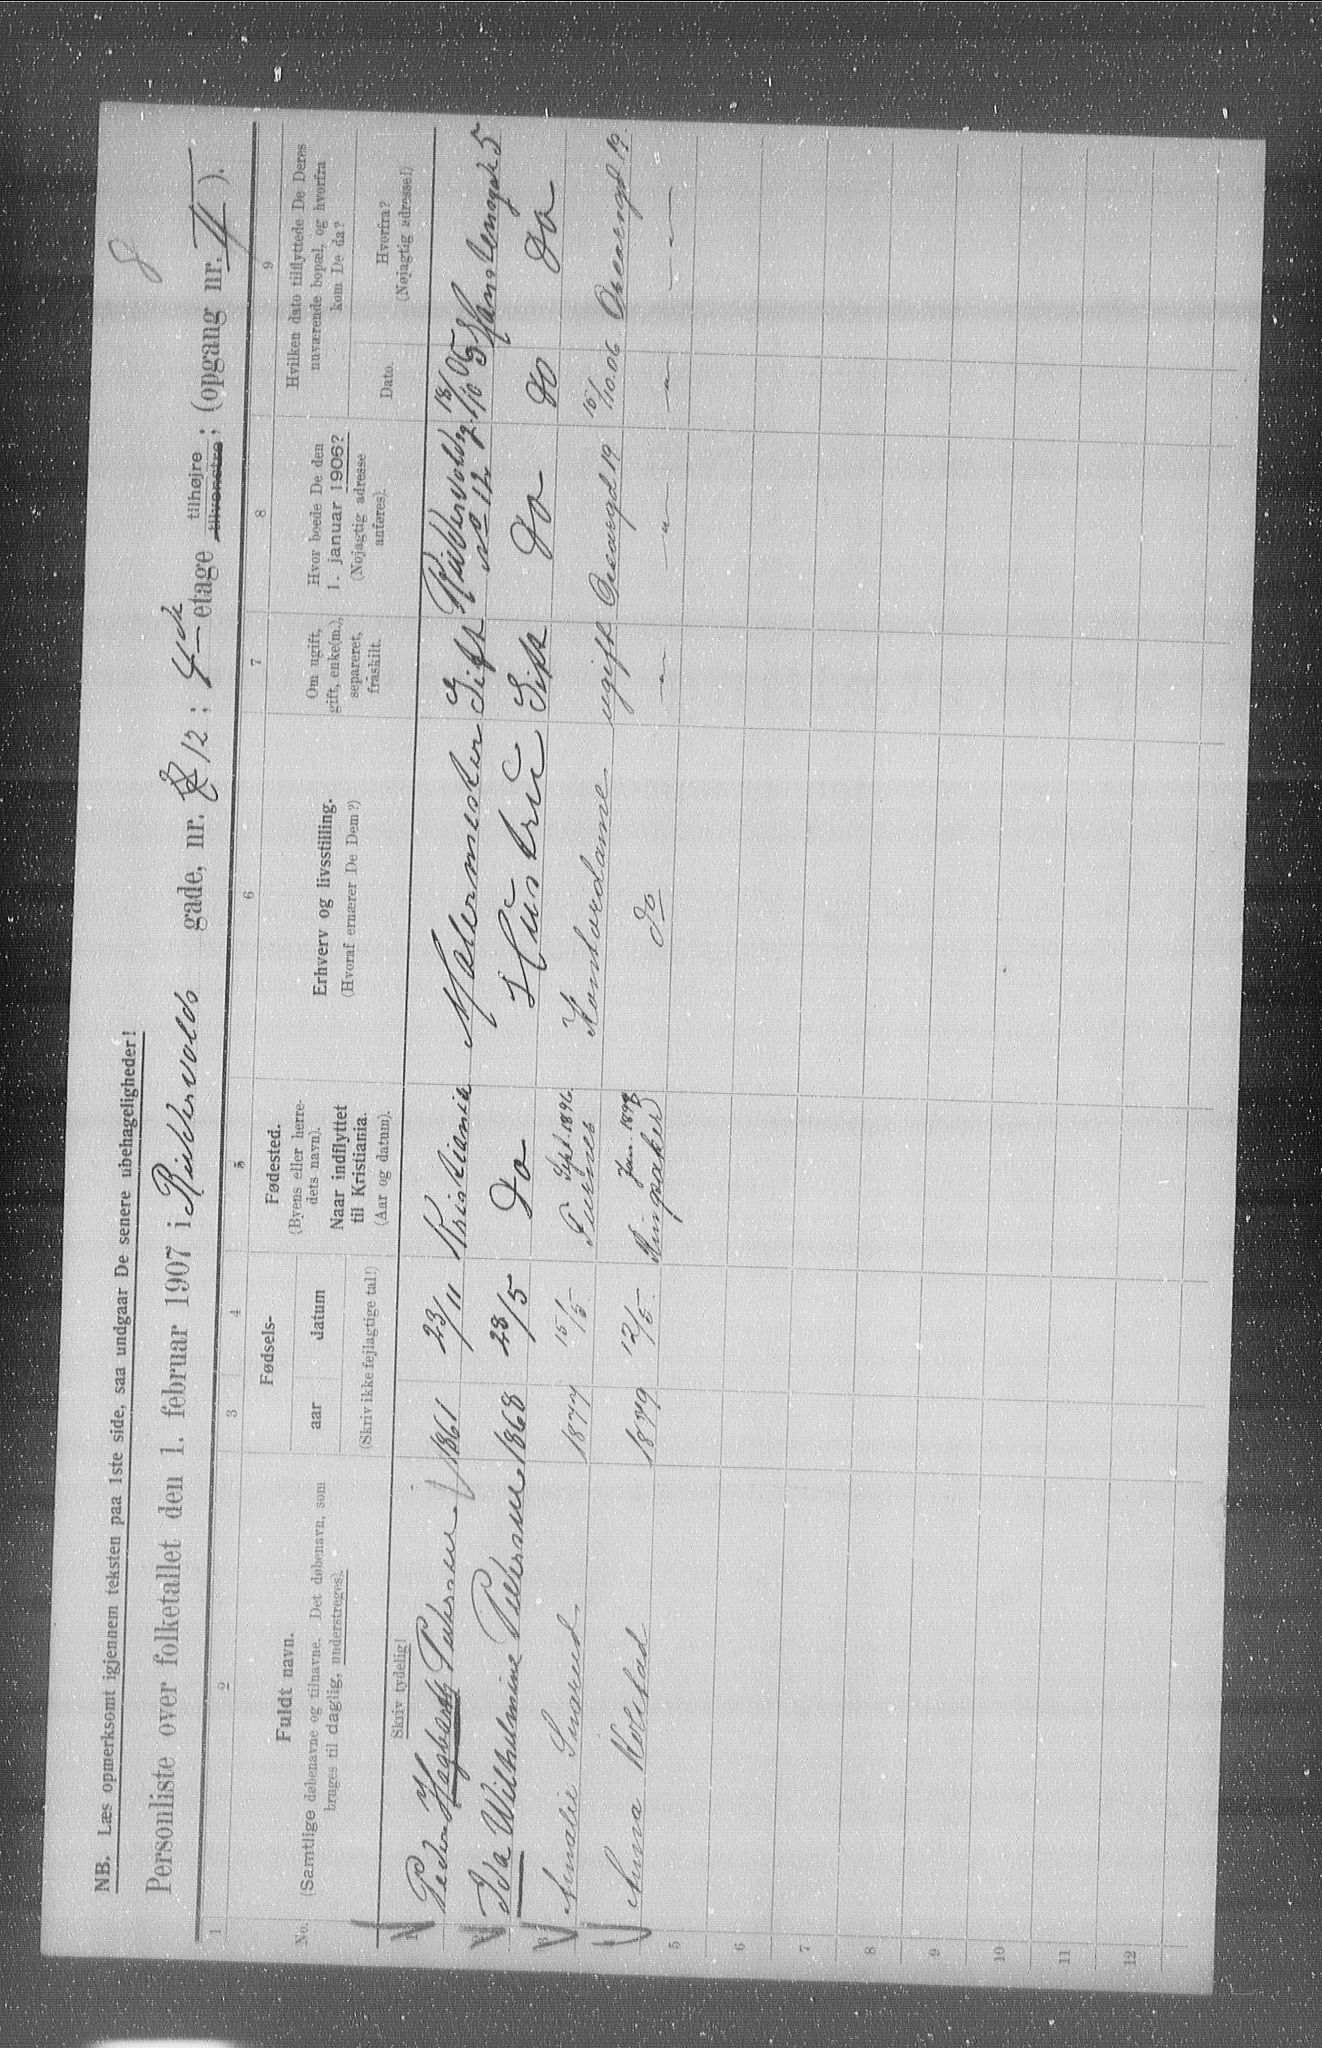 8
NB. Læs opmerksomt igjennem teksten paa 1ste side, saa undgaar De senere ubehageligheder!
Personliste over folketallet den 1. februar 1907 i Riddervolds gade, nr. 12; 4de etage tilhøjre tilvenstre; (opgang nr. II).
1 2 3 4 5 6 7 8 9
No.
Fuldt navn.
(Samtlige døbenavne og tilnavne. Det døbenavn, som
bruges til daglig, understreges).
Skriv tydelig!
Fødsels-
aar datum
(Skriv ikke fejlagtige tal!)
Fødested.
(Byens eller herre-
dets navn).
Naar indflyttet
til Kristiania.
(Aar og datum).
Erhverv og livsstilling.
(Hvoraf ernærer De Dem?)
Om ugift,
gift, enke(m.),
separeret,
fraskilt.
Hvor boede De den
1. januar 1906?
(Nøjagtig adresse
anføres).
Hvilken dato tilflyttede De Deres
nuværende bopæl, og hvorfra
kom De da?
Dato.
Hvorfra?
(Nøjagtig adresse!)
1 Peder Hagbarth Pedersen 1861 23/11 Kristiania Malermester Gift Riddervoldsg. No 12 18/10 05
2 Ida Wilhelmine Pedersen 1868 28/5 Do Hustru Gift Do do Do
3 Amalie 1877 15/5 Sept. 1896. Kontordame ugift 19 15/10.06 19.
4 Anna Kolstad 1879 12/5. Jan. Ringsaker do — " — — " — " — " —
5
6
7
8
9
10
11
12